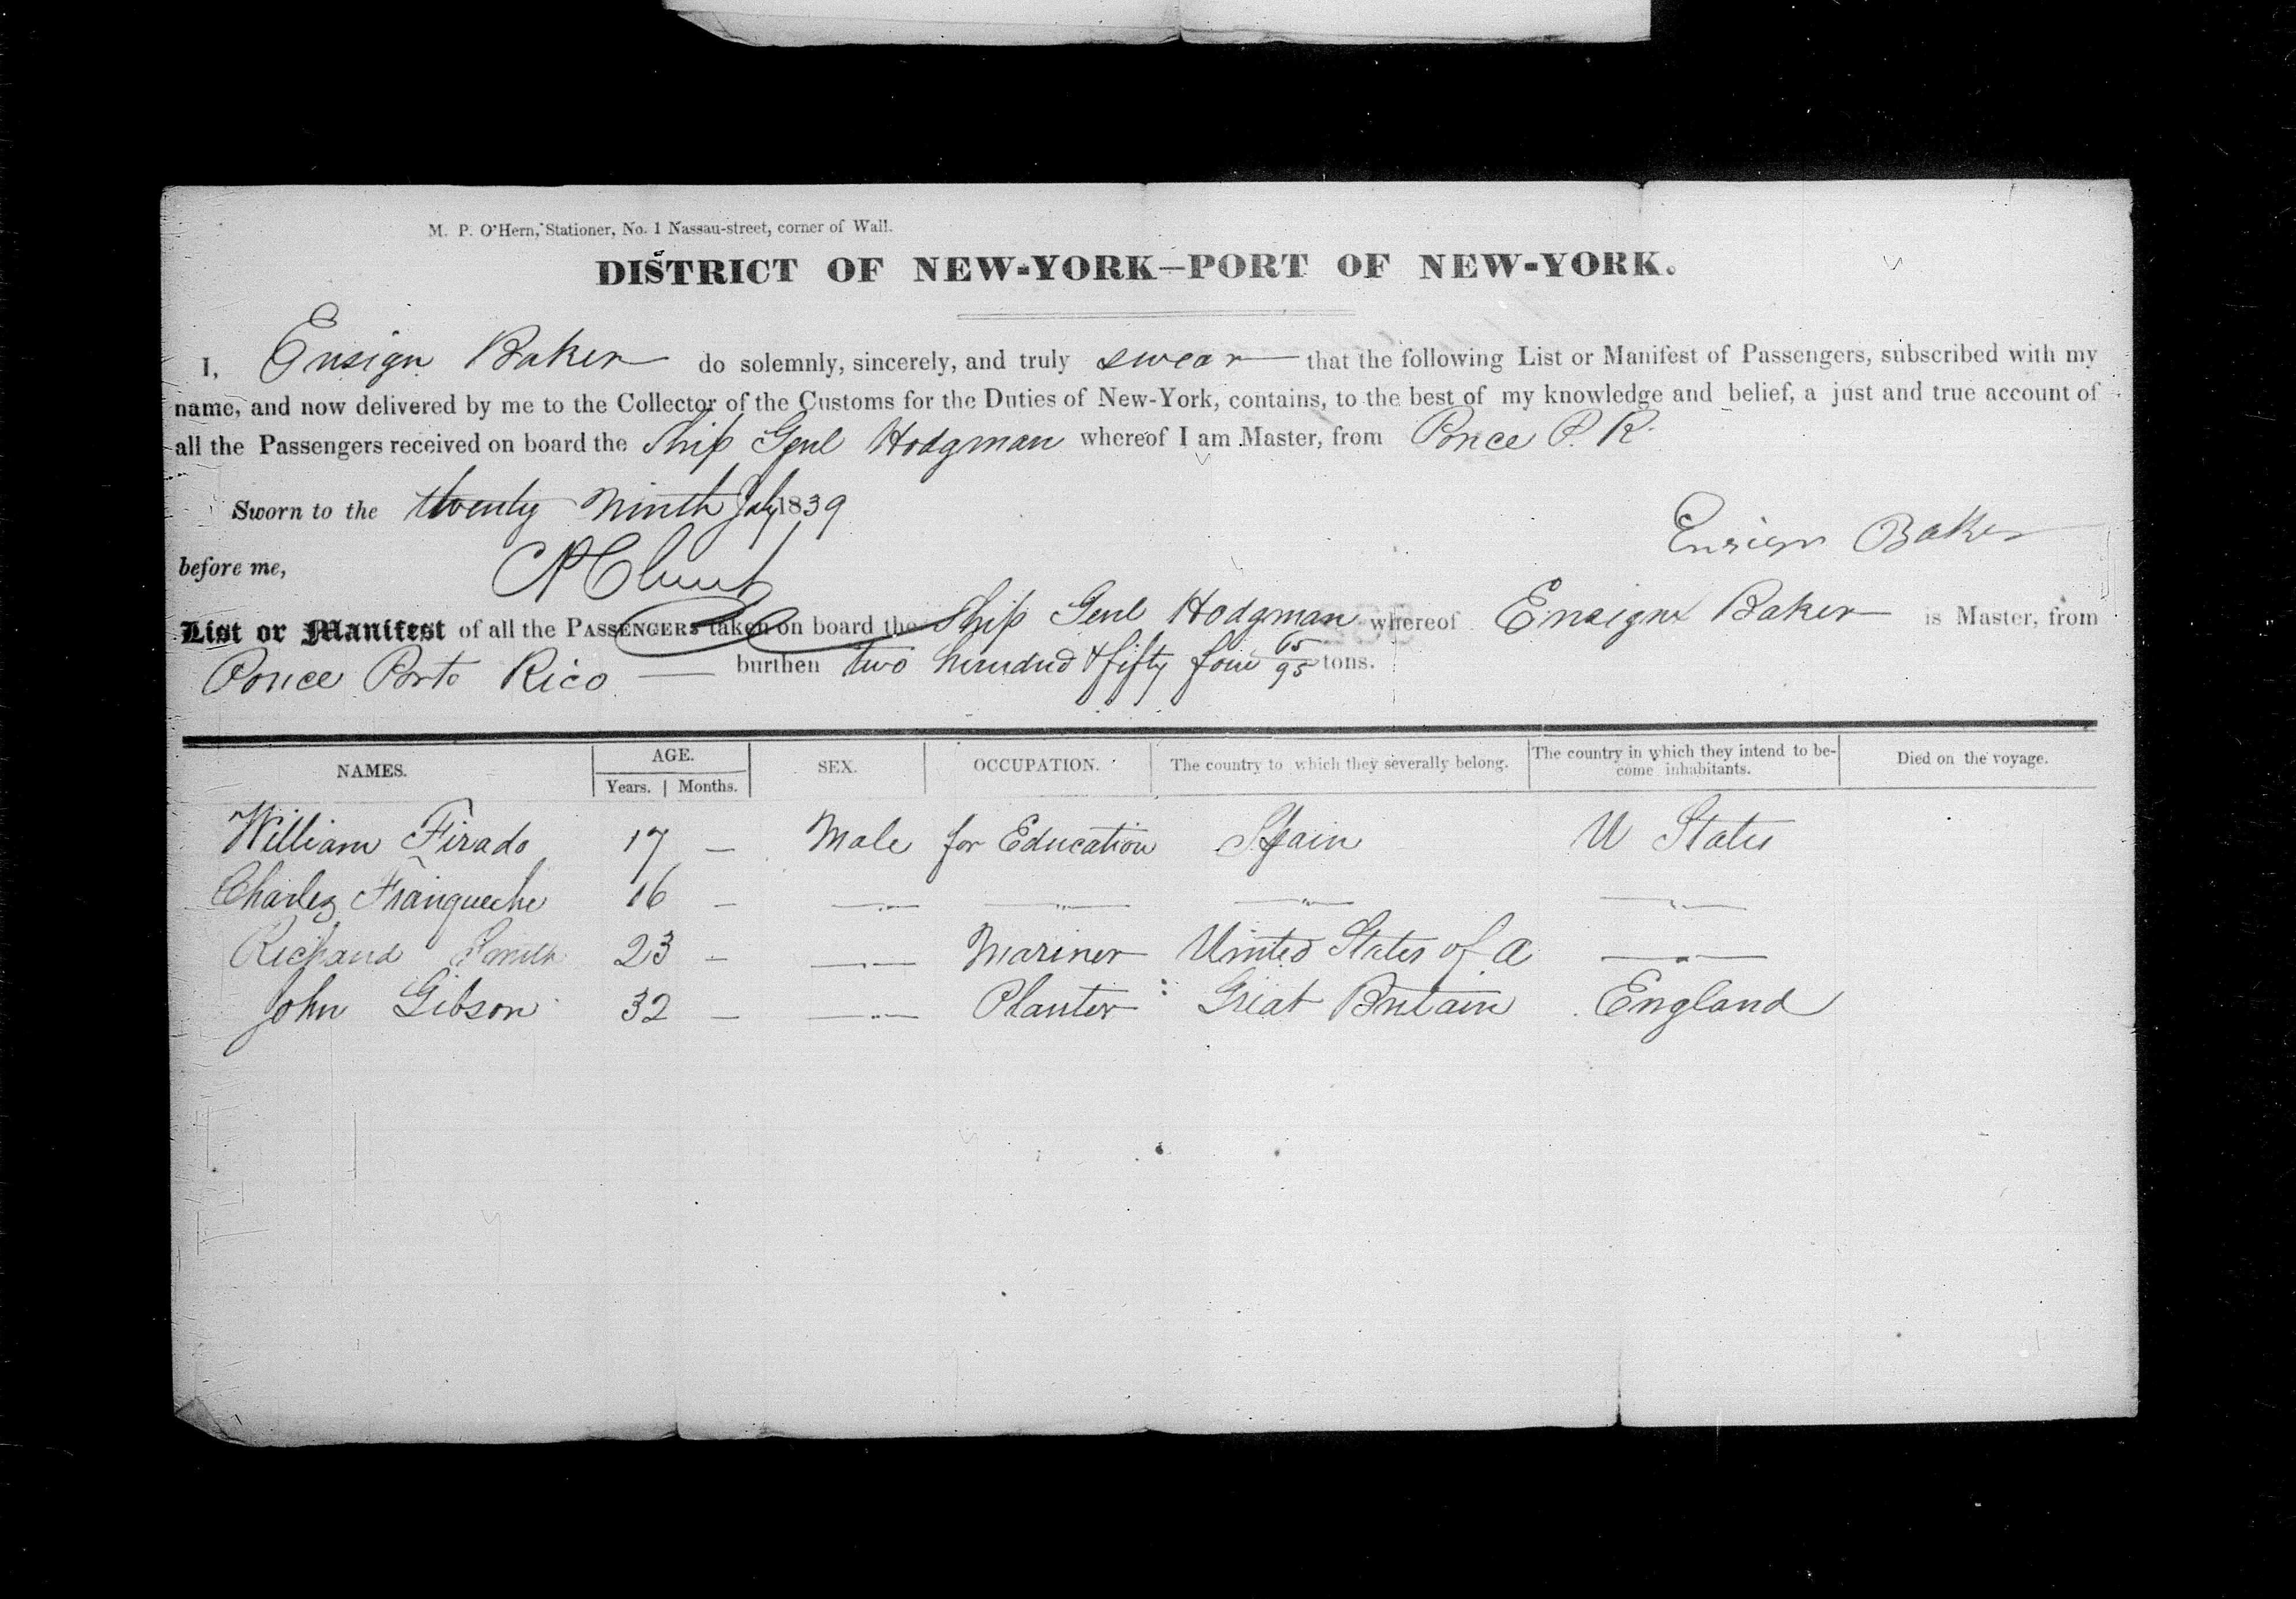 M. P. O'Hern, Stationer, No. 1 Nassau-street, corner of Wall.
DISTRICT OF NEW-YORK—PORT OF NEW-YORK.
I, Ensign Baker do solemnly, sincerely, and truly swear that the following List or Manifest of Passengers, subscribed with my
name, and now delivered by me to the Collector of the Customs for the Duties of New-York, contains, to the best of my knowledge and belief, a just and true account of
all the Passengers received on board the Ship Genl Hodgman whereof I am Master, from Ponce P. R.
Sworn to the twenty ninth July 1839
Ensign Baker
before me,
List or Manifest of all the PASSENGERS taken on board the Ship Genl Hodgman whereof Ensign Baker is Master, from
Ponce Porto Rico — burthen two hundred & fifty four 65/95 tons.
NAMES. AGE. SEX. OCCUPATION. The country to which they severally belong. The country in which they intend to be- Died on the voyage.
come inhabitants.
Years. Months.
William Firado 17 — Male for Education Spain U States
Charles Franqueche 16 — —"— —"— —"— —"—
Richard Smith 23 — —"— Mariner United States of A —"—
John Gibson 32 — —"— Planter Great Britain England